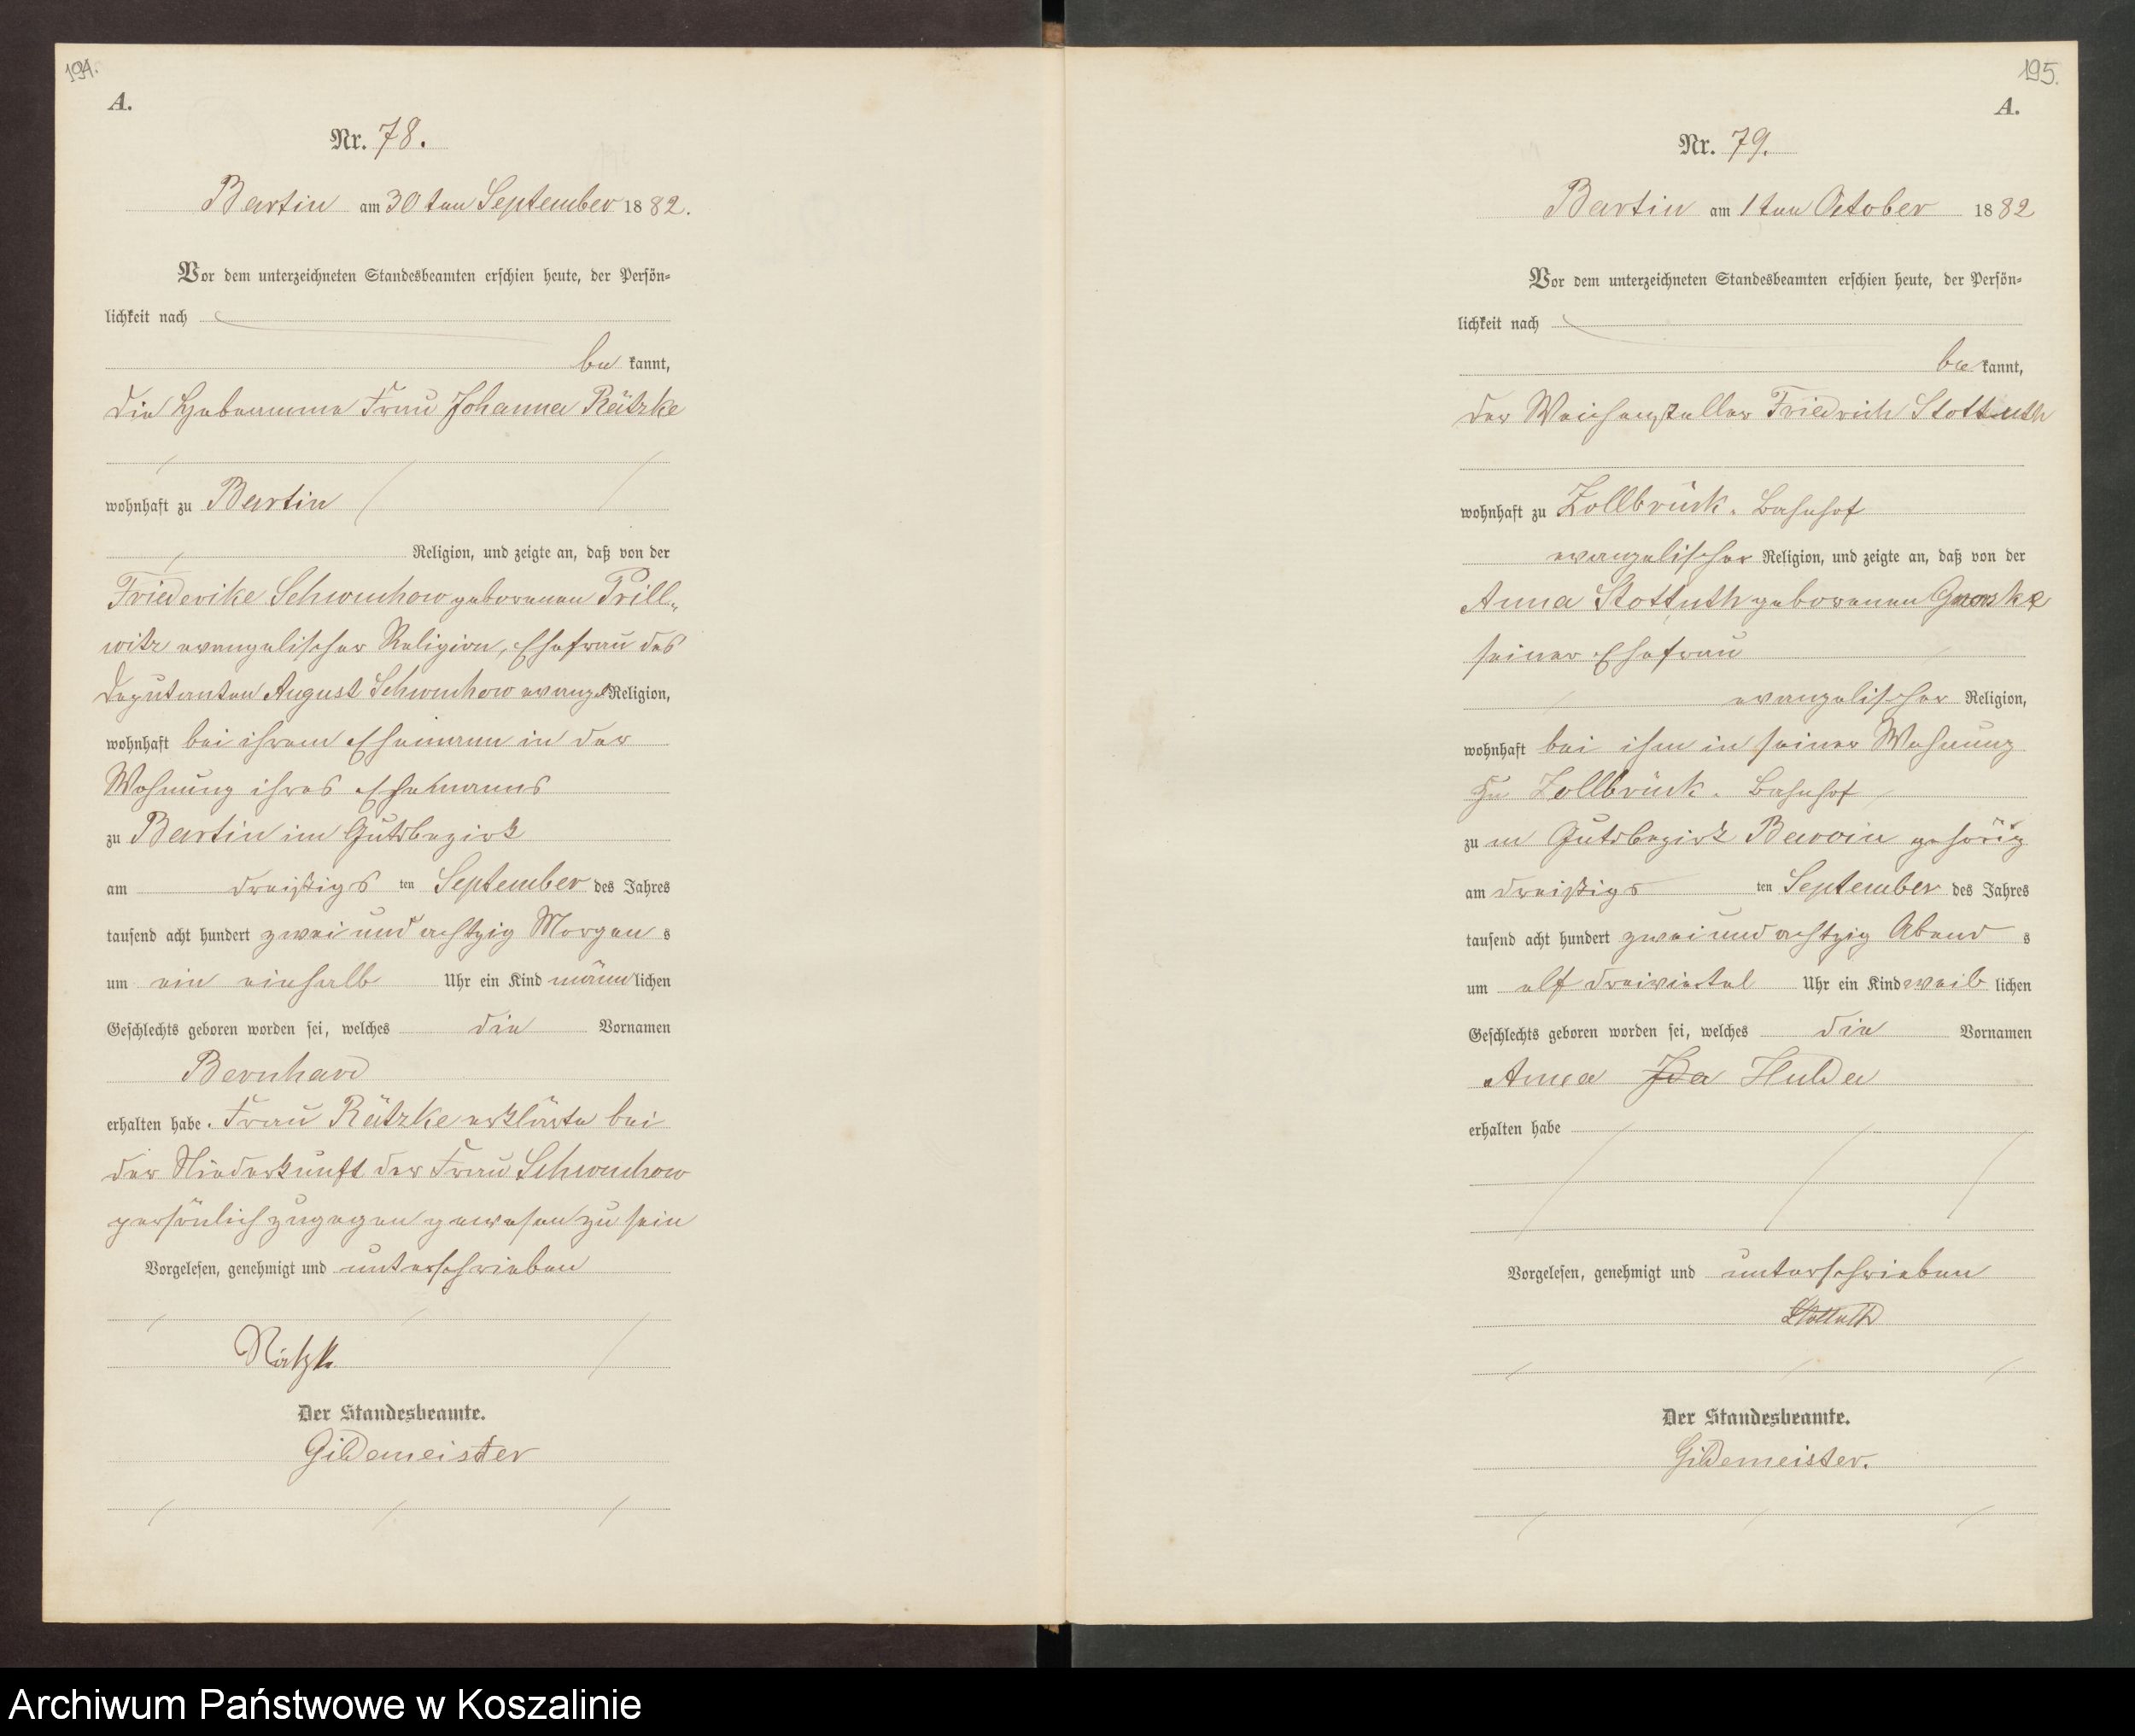 194.
A.
Nr. 78.
Bartin am 30ten September 1882.
Vor dem unterzeichneten Standesbeamten erschien heute, der Persön-
lichkeit nach
be kannt,
die Hebeamme Frau Johanna Rätzke
wohnhaft zu Bartin
Religion, und zeigte an, daß von der
Friederike Schwuchow geborenen Prill-
witz evangelischer Religion, Ehefrau des
Deputanten August Schwuchow evangl Religion,
wohnhaft bei ihrem Ehemann in der
Wohnung ihres Ehemanns
zu Bartin im Gutsbezirk
am dreißigs ten September des Jahres
tausend acht hundert zwei und achtzig Morgen s
um ein einhalb Uhr ein Kind männ lichen
Geschlechts geboren worden sei, welches die Vornamen
Bernhard
erhalten habe. Frau Rätzke erklärte bei
der Niederkunft der Frau Schwuchow
persönlich zugegen gewesen zu sein
Vorgelesen, genehmigt und unterschrieben
Rätzke
Der Standesbeamte.
Gildemeister
195.
A.
Nr. 79.
Bartin am 1ten October 1882
Vor dem unterzeichneten Standesbeamten erschien heute, der Persön-
lichkeit nach
be kannt,
der Weichensteller Friedrich Stottuth
wohnhaft zu Zollbrück. Bahnhof
evangelischer Religion, und zeigte an, daß von der
Anna Stottuth geborenen
seiner Ehefrau
evangelischer Religion,
wohnhaft bei ihm in seiner Wohnung
zu Zollbrück. Bahnhof
zu m Gutsbezirk Barvin gehörig
am dreißigs ten September des Jahres
tausend acht hundert zwei und achtzig Abend s
um elf dreiviertel Uhr ein Kind weib lichen
Geschlechts geboren worden sei, welches die Vornamen
Anna Ida Hulda
erhalten habe
Vorgelesen, genehmigt und unterschrieben
Stottuth
Der Standesbeamte.
Gildemeister.
Archiwum Państwowe w Koszalinie